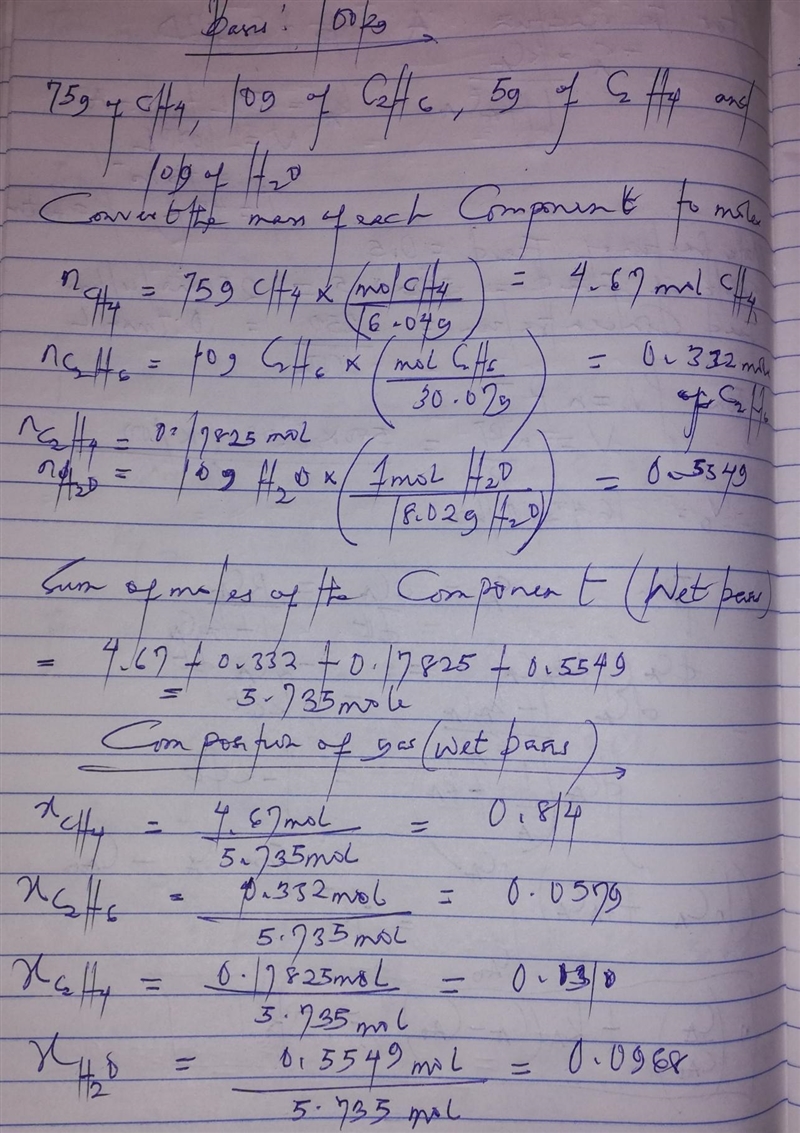 Basis: 100kg
75g of CH4, 10g of C2H6, 5g of C2H4 and
10g of H2O
Convert the mass of each Component to moles
nCH4 = 75g CH4 × (mol CH4 / 16.04g) = 4.67 mol CH4
nC2H6 = 10g C2H6 × (mol C2H6 / 30.07g) = 0.332 mole of C2H6
nC2H4 = 0.17825 mol
nH2O = 10g H2O × (1mol H2O / 18.02g H2O) = 0.5549
Sum of moles of the Component (Wet basis)
= 4.67 + 0.332 + 0.17825 + 0.5549
= 5.735 mole
Composition of gas (Wet basis)
xCH4 = 4.67mol / 5.735mol = 0.814
xC2H6 = 0.332mol / 5.735mol = 0.0579
xC2H4 = 0.17825mol / 5.735mol = 0.0310
xH2O = 0.5549 mol / 5.735 mol = 0.0968